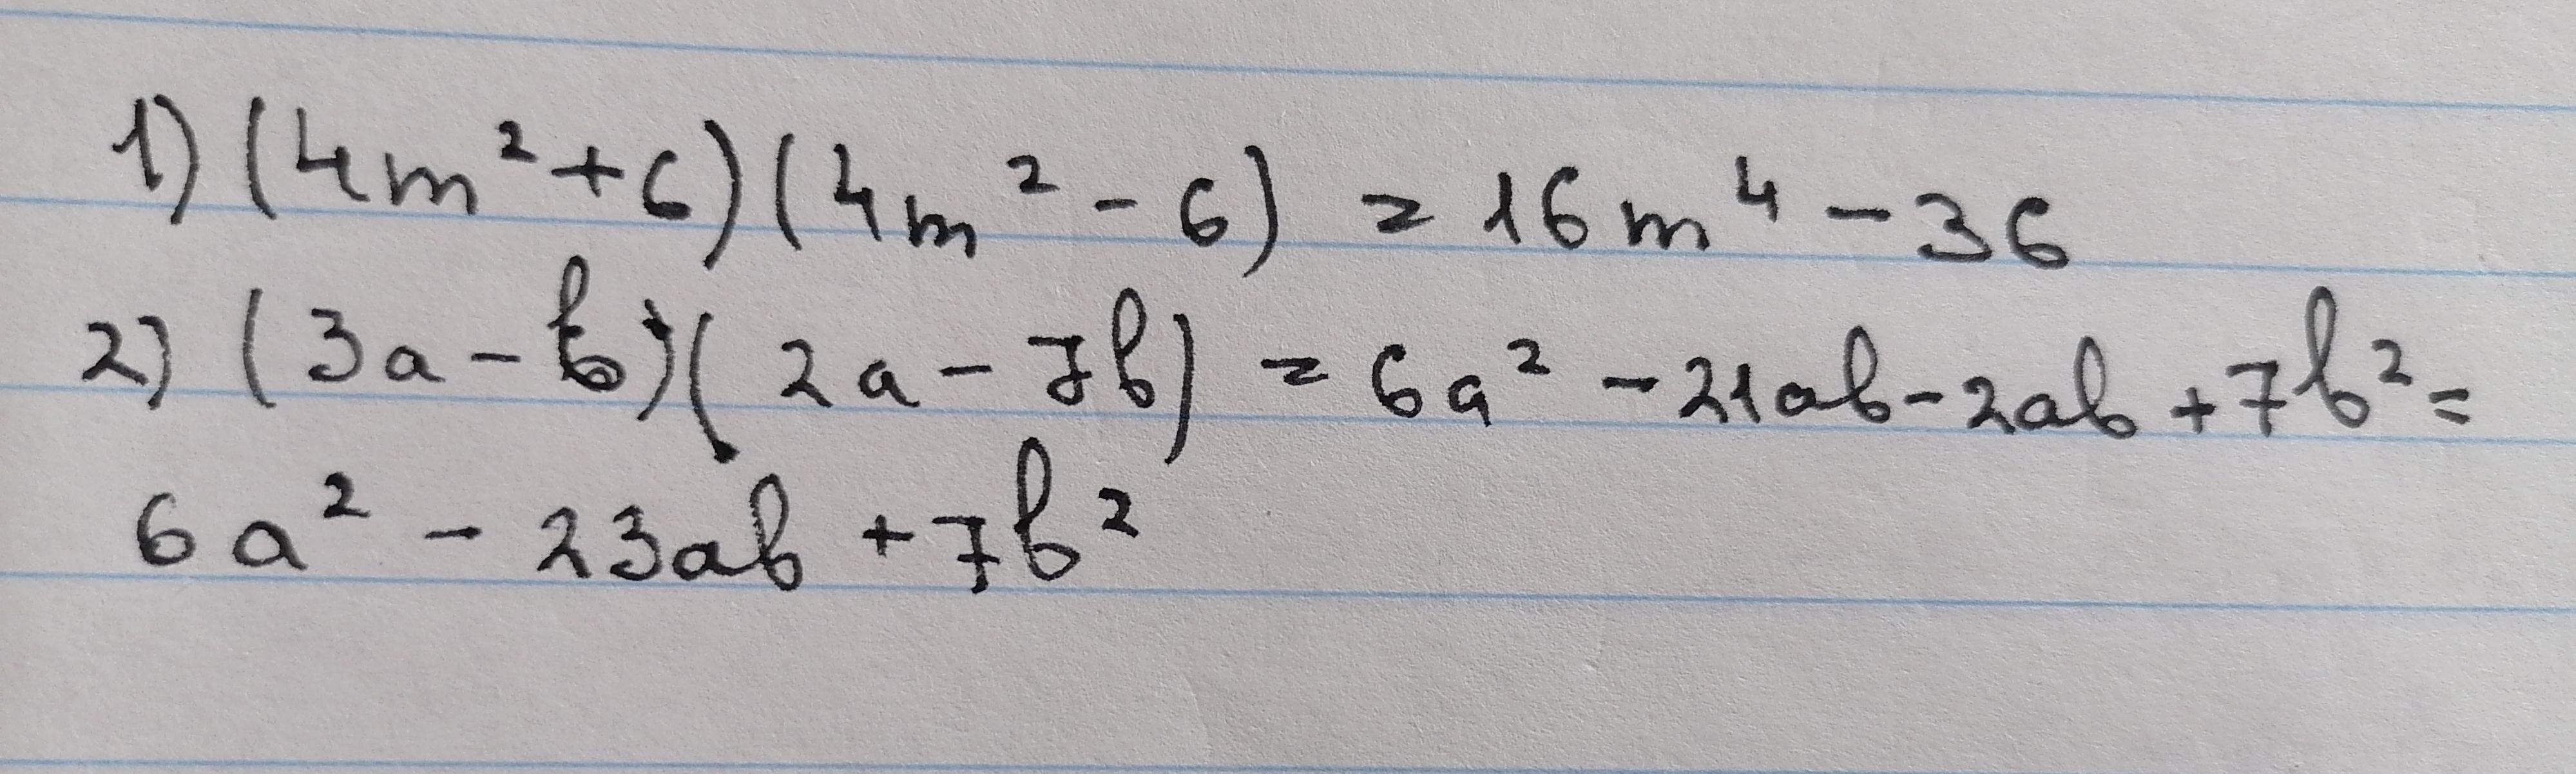 1) (4m² + 6)(4m² - 6) = 16m⁴ - 36
2) (3a - b)(2a - 7b) = 6a² - 21ab - 2ab + 7b² =
6a² - 23ab + 7b²